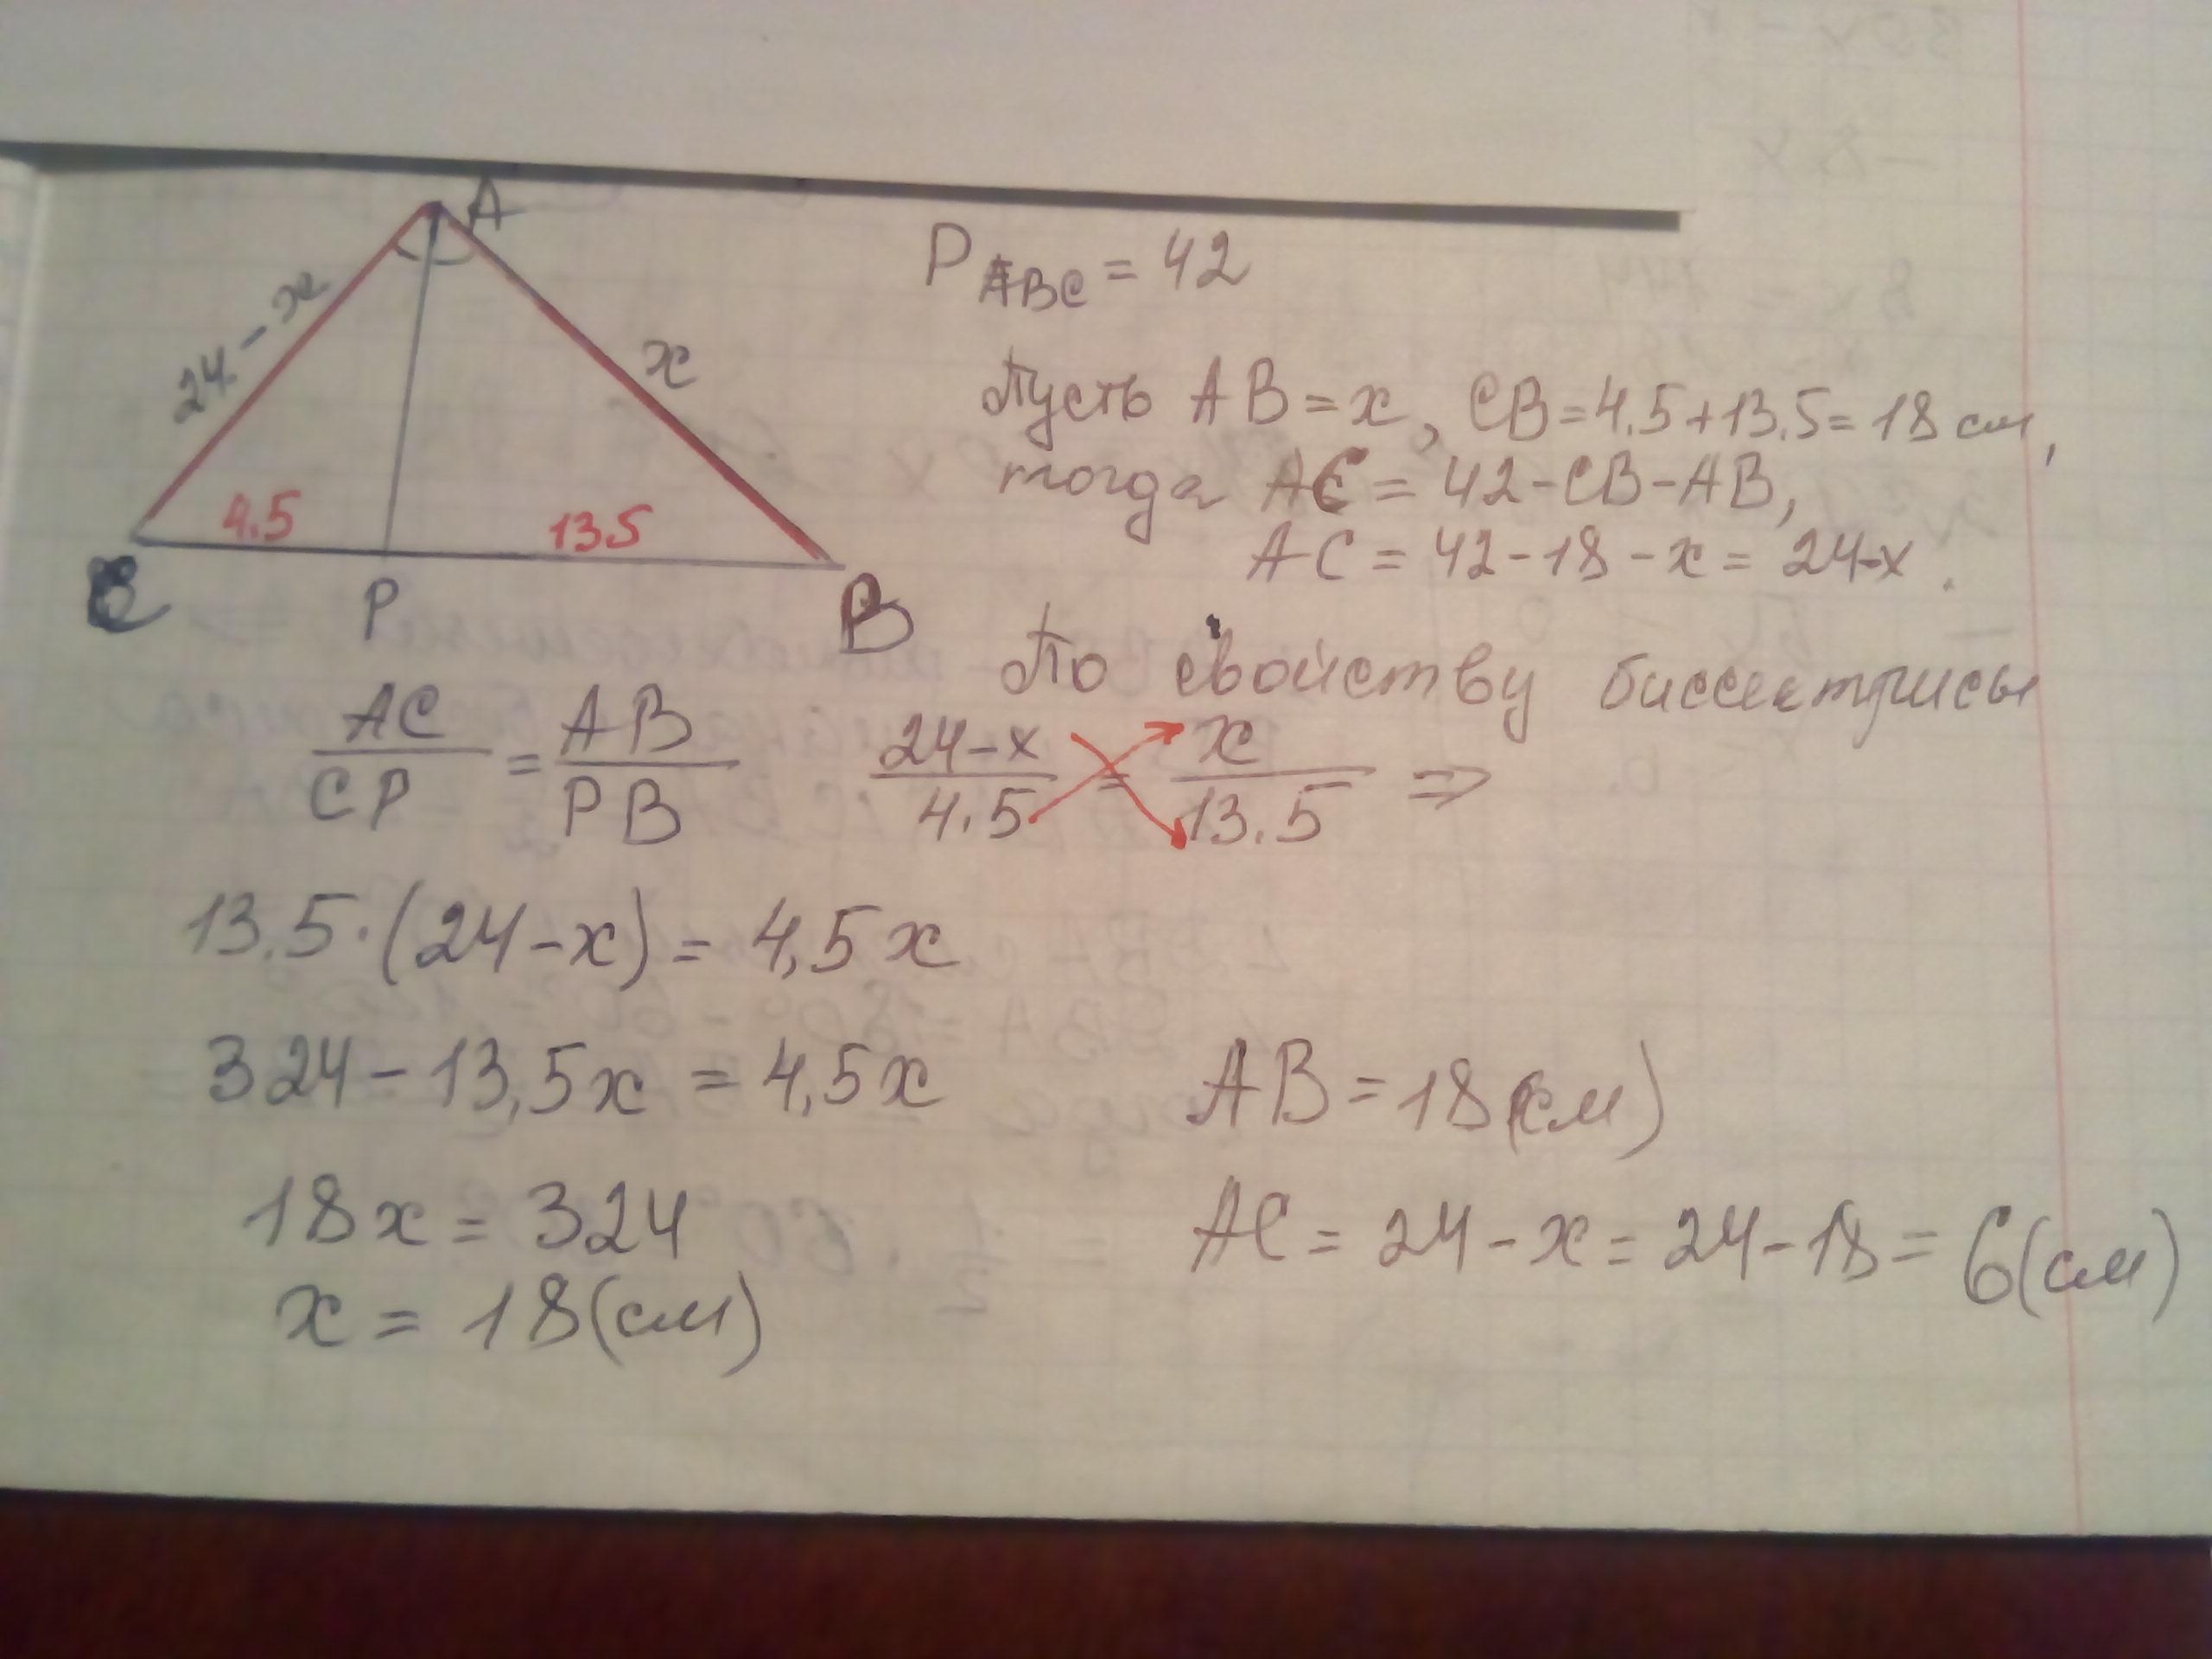 A
24-x
x
4.5
13.5
C
P
B
P ABC = 42
Пусть AB = x, CB = 4.5+13.5 = 18 см,
тогда AC = 42-CB-AB,
AC = 42-18-x = 24-x.
По свойству биссектрисы
AC/CP = AB/PB
24-x/4.5 = x/13.5 ⇒
13.5·(24-x) = 4,5x
324-13,5x = 4,5x
18x = 324
x = 18(см)
AB = 18(см)
AC = 24-x = 24-18 = 6(см)